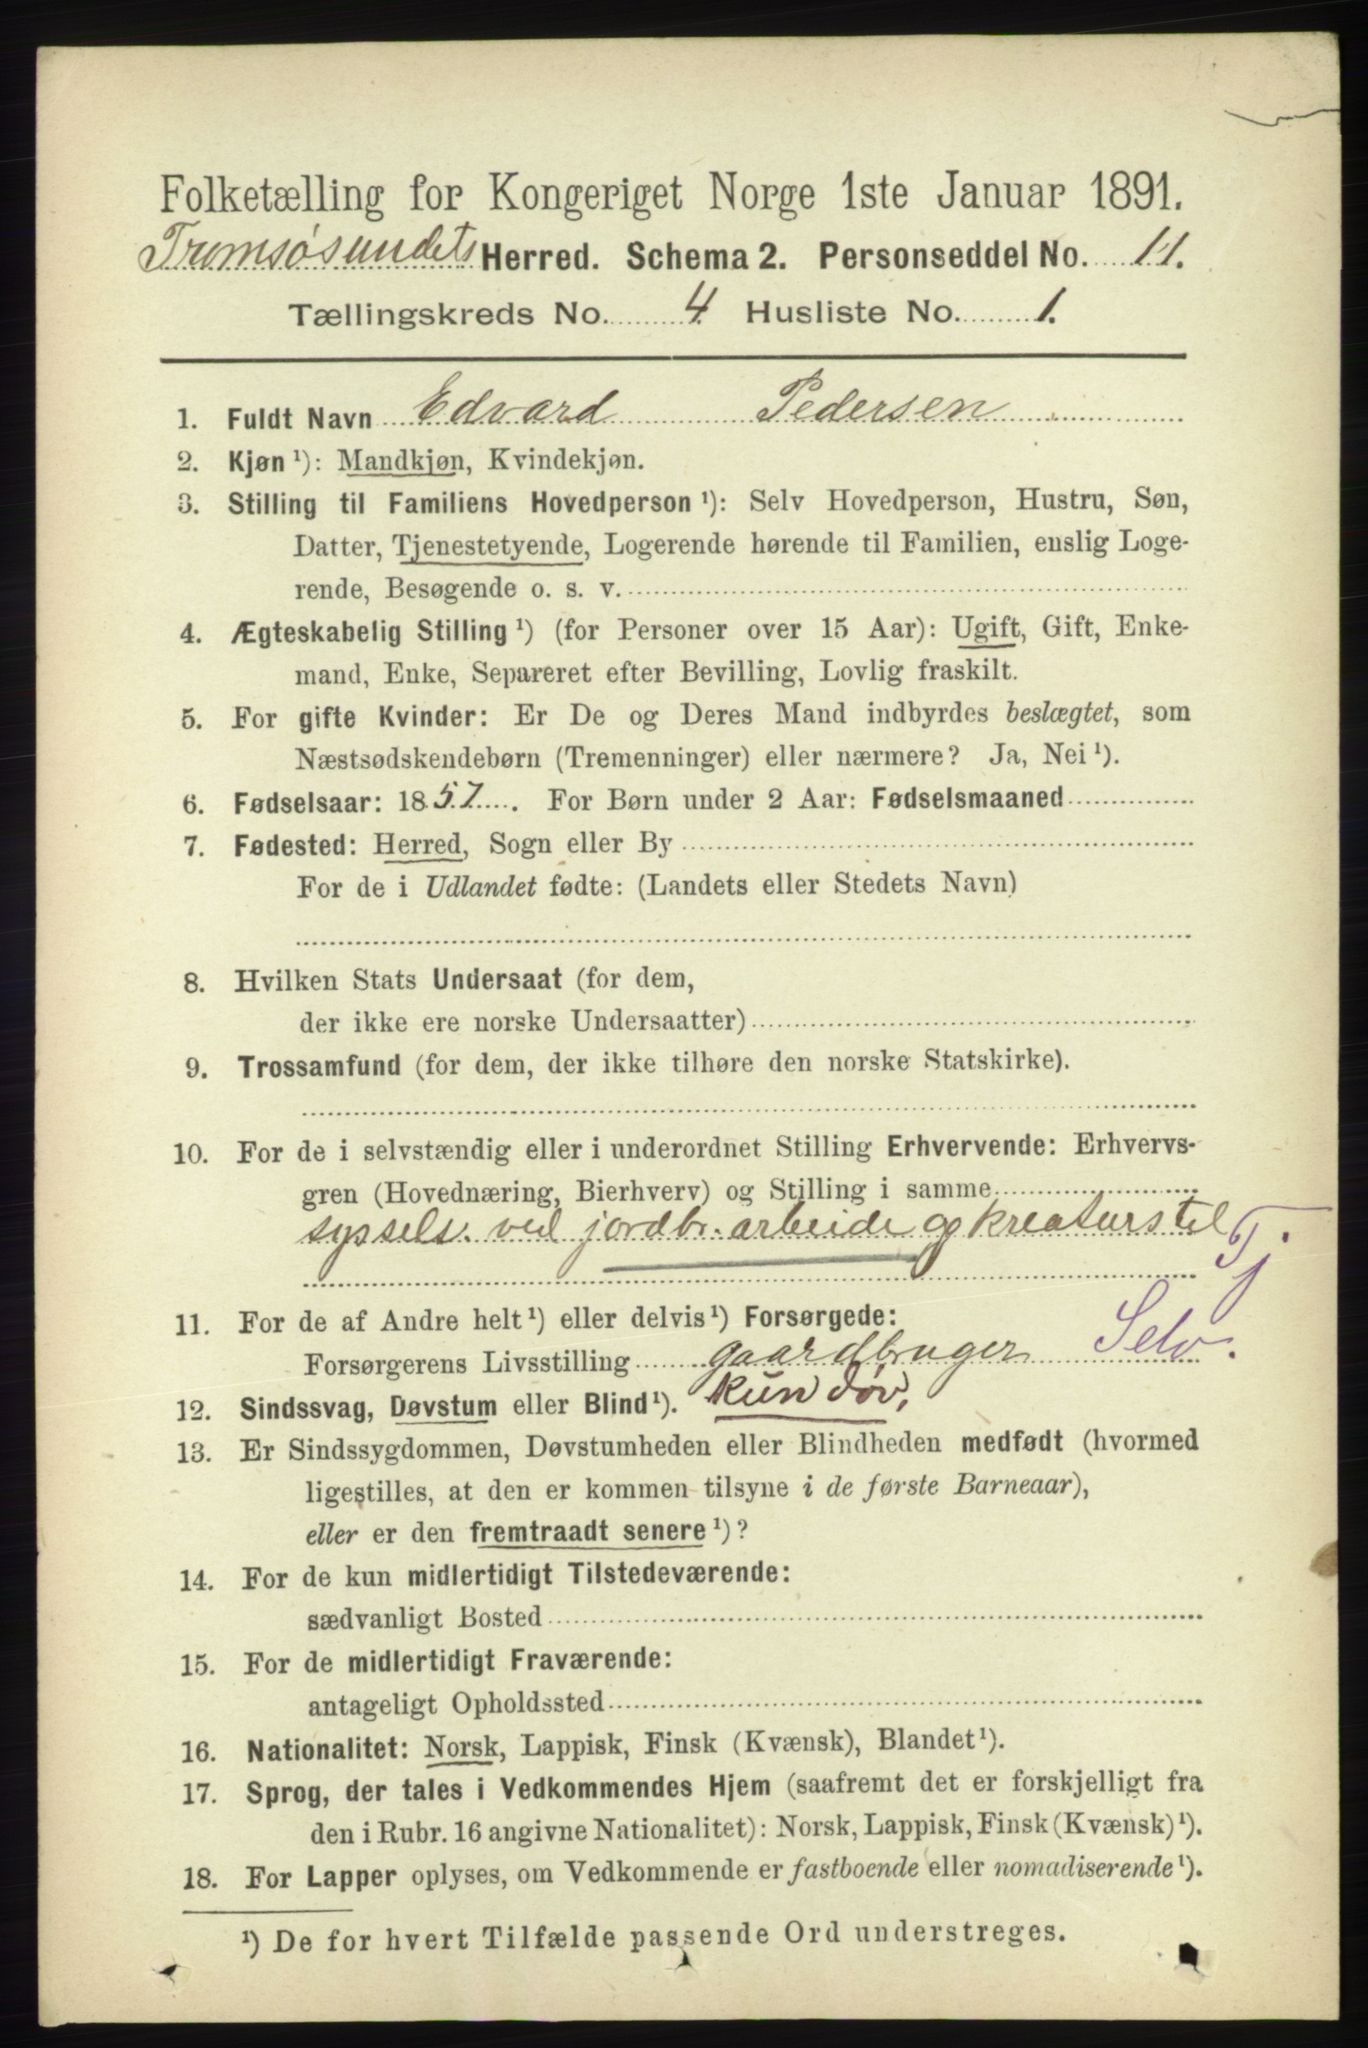 Folketælling for Kongeriget Norge 1ste Januar 1891.
Tromsøsundets Herred. Schema 2. Personseddel No. 11.
Tællingskreds No. 4. Husliste No. 1.
1. Fuldt Navn Edvard Pedersen
2. Kjøn ¹): Mandkjøn, Kvindekjøn.
3. Stilling til Familiens Hovedperson ¹): Selv Hovedperson, Hustru, Søn,
Datter, Tjenestetyende, Logerende hørende til Familien, enslig Loge-
rende, Besøgende o. s. v.
4. Ægteskabelig Stilling ¹) (for Personer over 15 Aar): Ugift, Gift, Enke-
mand, Enke, Separeret efter Bevilling, Lovlig fraskilt.
5. For gifte Kvinder: Er De og Deres Mand indbyrdes beslægtet, som
Næstsødskendebørn (Tremenninger) eller nærmere? Ja, Nei ¹).
6. Fødselsaar: 1857. For Børn under 2 Aar: Fødselsmaaned
7. Fødested: Herred, Sogn eller By
For de i Udlandet fødte: (Landets eller Stedets Navn)
8. Hvilken Stats Undersaat (for dem,
der ikke ere norske Undersaatter)
9. Trossamfund (for dem, der ikke tilhøre den norske Statskirke).
10. For de i selvstændig eller i underordnet Stilling Erhvervende: Erhvervs-
gren (Hovednæring, Bierhverv) og Stilling i samme
syssels. ved jordbr. arbeide og kreaturstel
Tj
11. For de af Andre helt ¹) eller delvis ¹) Forsørgede:
Forsørgerens Livsstilling gaardbruger Selv.
12. Sindssvag, Døvstum eller Blind ¹). kun døv,
13. Er Sindssygdommen, Døvstumheden eller Blindheden medfødt (hvormed
ligestilles, at den er kommen tilsyne i de første Barneaar),
eller er den fremtraadt senere ¹)?
14. For de kun midlertidigt Tilstedeværende:
sædvanligt Bosted
15. For de midlertidigt Fraværende:
antageligt Opholdssted
16. Nationalitet: Norsk, Lappisk, Finsk (Kvænsk), Blandet ¹).
17. Sprog, der tales i Vedkommendes Hjem (saafremt det er forskjelligt fra
den i Rubr. 16 angivne Nationalitet): Norsk, Lappisk, Finsk (Kvænsk) ¹).
18. For Lapper oplyses, om Vedkommende er fastboende eller nomadiserende ¹).
¹) De for hvert Tilfælde passende Ord understreges.